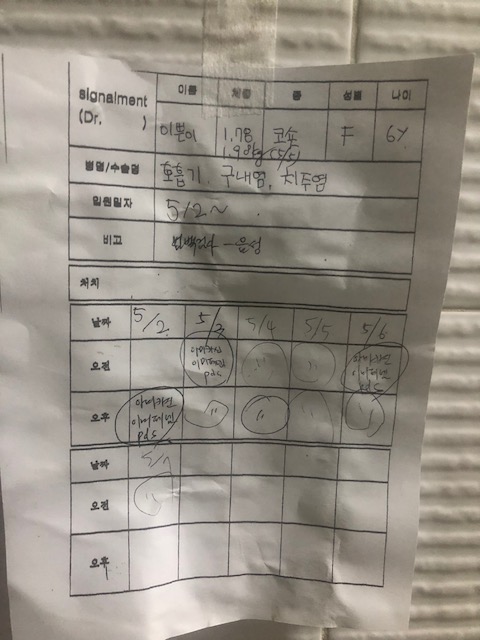 signalment 이름 체중 종 성별 나이
(Dr. ) 이쁜이 1.78 코숏 F 6Y
1.98kg (5/5)
병명/수술명 호흡기, 구내염, 치주염
입원일자 5/2~
비고 범백검사 - 음성
처치
날짜 5/2 5/3 5/4 5/5 5/6
오전 아미카신 〃 〃 아미카신
이미페넴 이미페넴
pds pds
오후 아미카신 〃 〃 〃
이미페넴
pds
날짜 5/7
오전 〃
오후